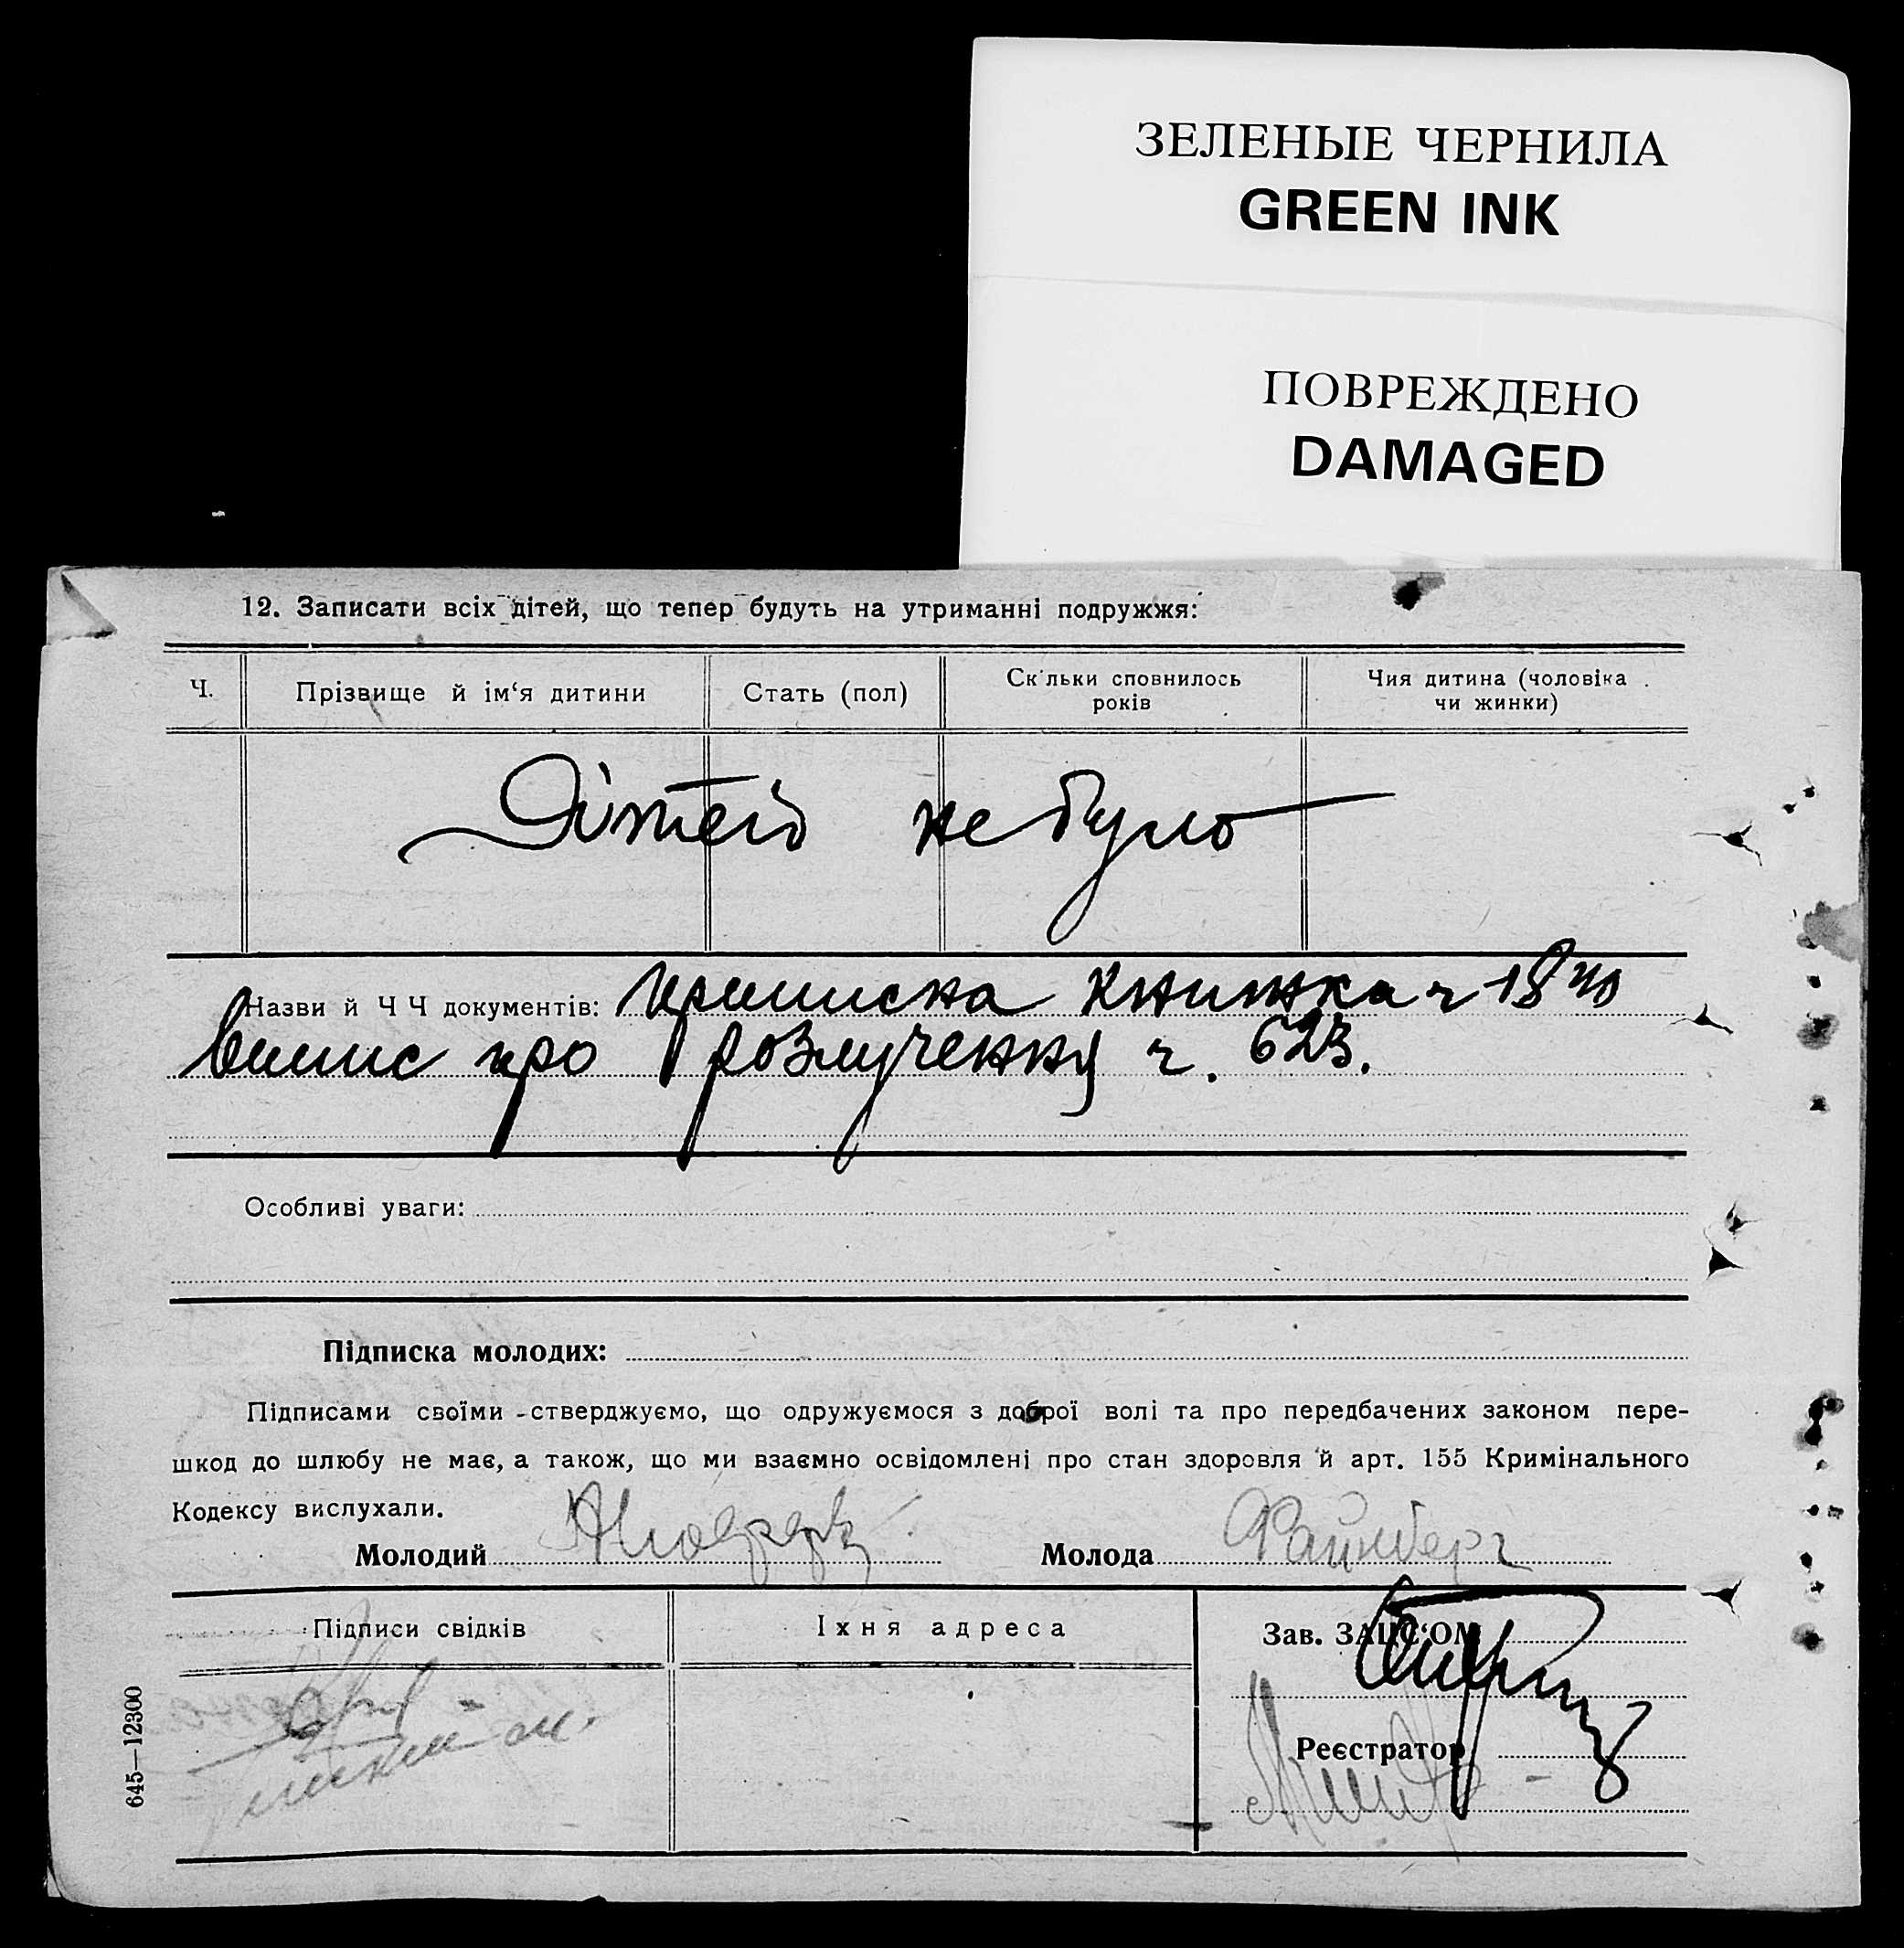 ЗЕЛЕНЫЕ ЧЕРНИЛА
GREEN INK
ПОВРЕЖДЕНО
DAMAGED
12. Записати всіх дітей, що тепер будуть на утриманні подружжя:
Ч.
Прізвище й ім‘я дитини
Стать (пол)
Скільки сповнилось
років
Чия дитина (чоловіка
чи жинки)
Дітей не було
Назви й Ч Ч документів: Приписна книжка ч
Випис про розлучення ч. 623.
Особливі уваги:
Підписка молодих:
Підписами своїми стверджуємо, що одружуємося з доброї волі та про передбачених законом пере-
шкод до шлюбу не має, а також, що ми взаємно освідомлені про стан здоровля й арт. 155 Кримінального
Кодексу вислухали.
Молодий
Молода Файнберг
Підписи свідків
Їхня адреса
Зав. ЗАПС‘ОМ
Реєстратор
645—12300